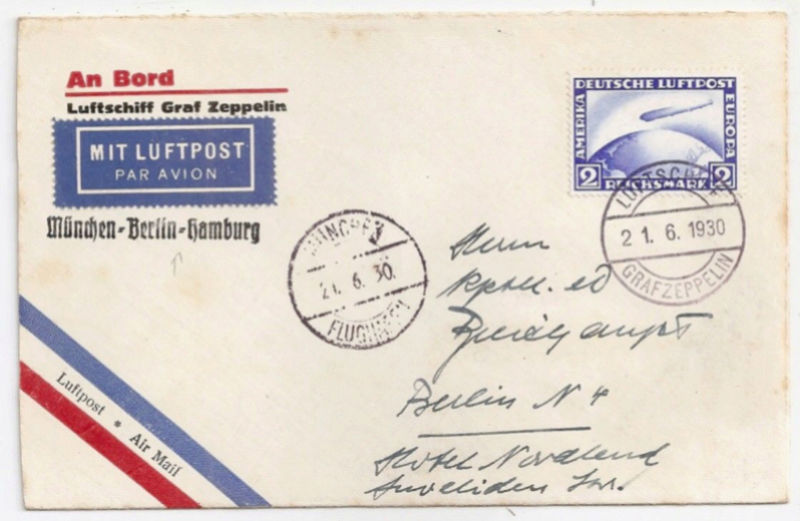 An Bord
Luftschiff Graf Zeppelin
MIT LUFTPOST
PAR AVION
München-Berlin-Hamburg
DEUTSCHE LUFTPOST
AMERIKA
EUROPA
2 REICHSMARK 2
LUFTSCHIFF
21.6.1930
GRAF ZEPPELIN
MÜNCHEN
21.6.30.
FLUGHAFEN
Herrn
Berlin N 4
Hotel Nordland
Luftpost * Air Mail